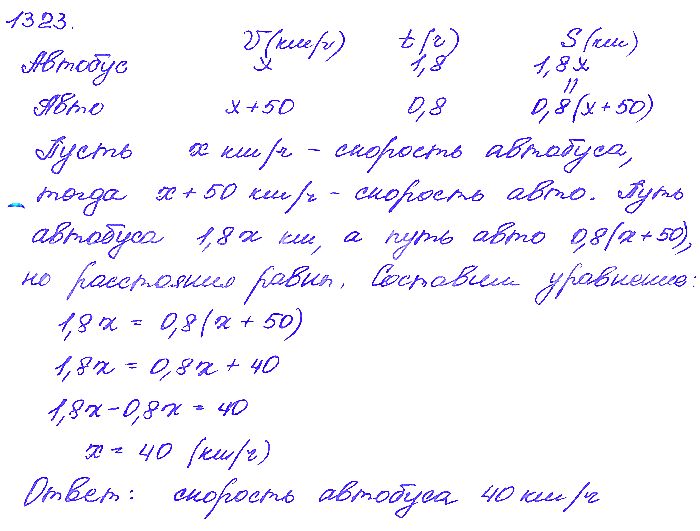 1323.
V(км/ч) t(ч) S(км)
Автобус x 1,8 1,8x
=
Авто x+50 0,8 0,8(x+50)
Пусть x км/ч - скорость автобуса,
тогда x+50 км/ч - скорость авто. Путь
автобуса 1,8x км, а путь авто 0,8(x+50),
но расстояния равны. Составим уравнение:
1,8x = 0,8(x+50)
1,8x = 0,8x + 40
1,8x-0,8x = 40
x = 40 (км/ч)
Ответ: скорость автобуса 40 км/ч